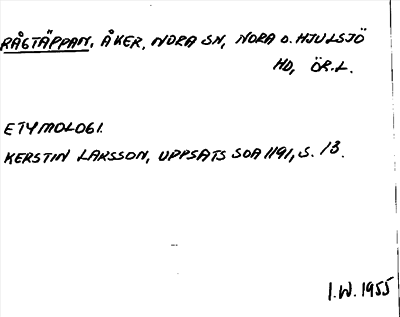 RÅGTÄPPAN, ÅKER, NORA SN, NORA O. HJULSJÖ
HD, ÖR.L.
ETYMOLOGI.
KERSTIN LARSSON, UPPSATS SOA 1191, S. 13.
I.W. 1955